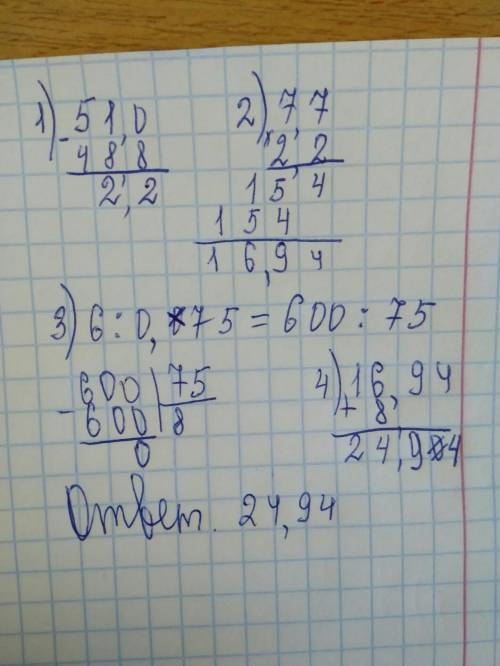 1) 51,0 2) 7,7
- 48,8 × 2,2
2,2 15 4
154
16,94
3) 6 : 0,75 = 600 : 75
600 | 75 4) 16,94
- 600 | 8 + 8,
0 24,94
Ответ. 24,94